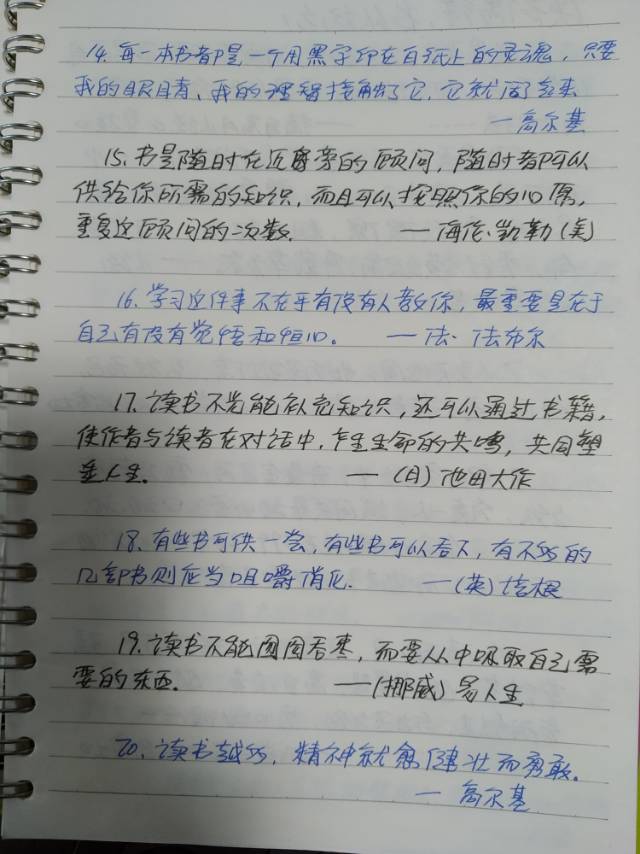 14. 每一本书都是一个用黑字印在白纸上的灵魂，只要
我的眼睛、我的理智接触了它，它就活起来
一高尔基
15. 书是随时在近身旁的顾问，随时都可以
供给你所需的知识，而且可以按照你的心愿，
重复这顾问的次数。 一海伦·凯勒(美)
16. 学习这件事不在乎有没有人教你，最重要是在于
自己有没有觉悟和恒心。 一法·法布尔
17. 读书不光能补充知识，还可以通过书籍，
使作者与读者在对话中，产生生命的共鸣，共同塑
造人生。 一(日)池田大作
18. 有些书可供一尝，有些书可以吞下，有不多的
几部书则应当咀嚼消化. 一(英)培根
19. 读书不能囫囵吞枣，而要从中吸取自己需
要的东西。 一(挪威)易人生
20. 读书越多，精神就愈健壮而勇敢。
一高尔基